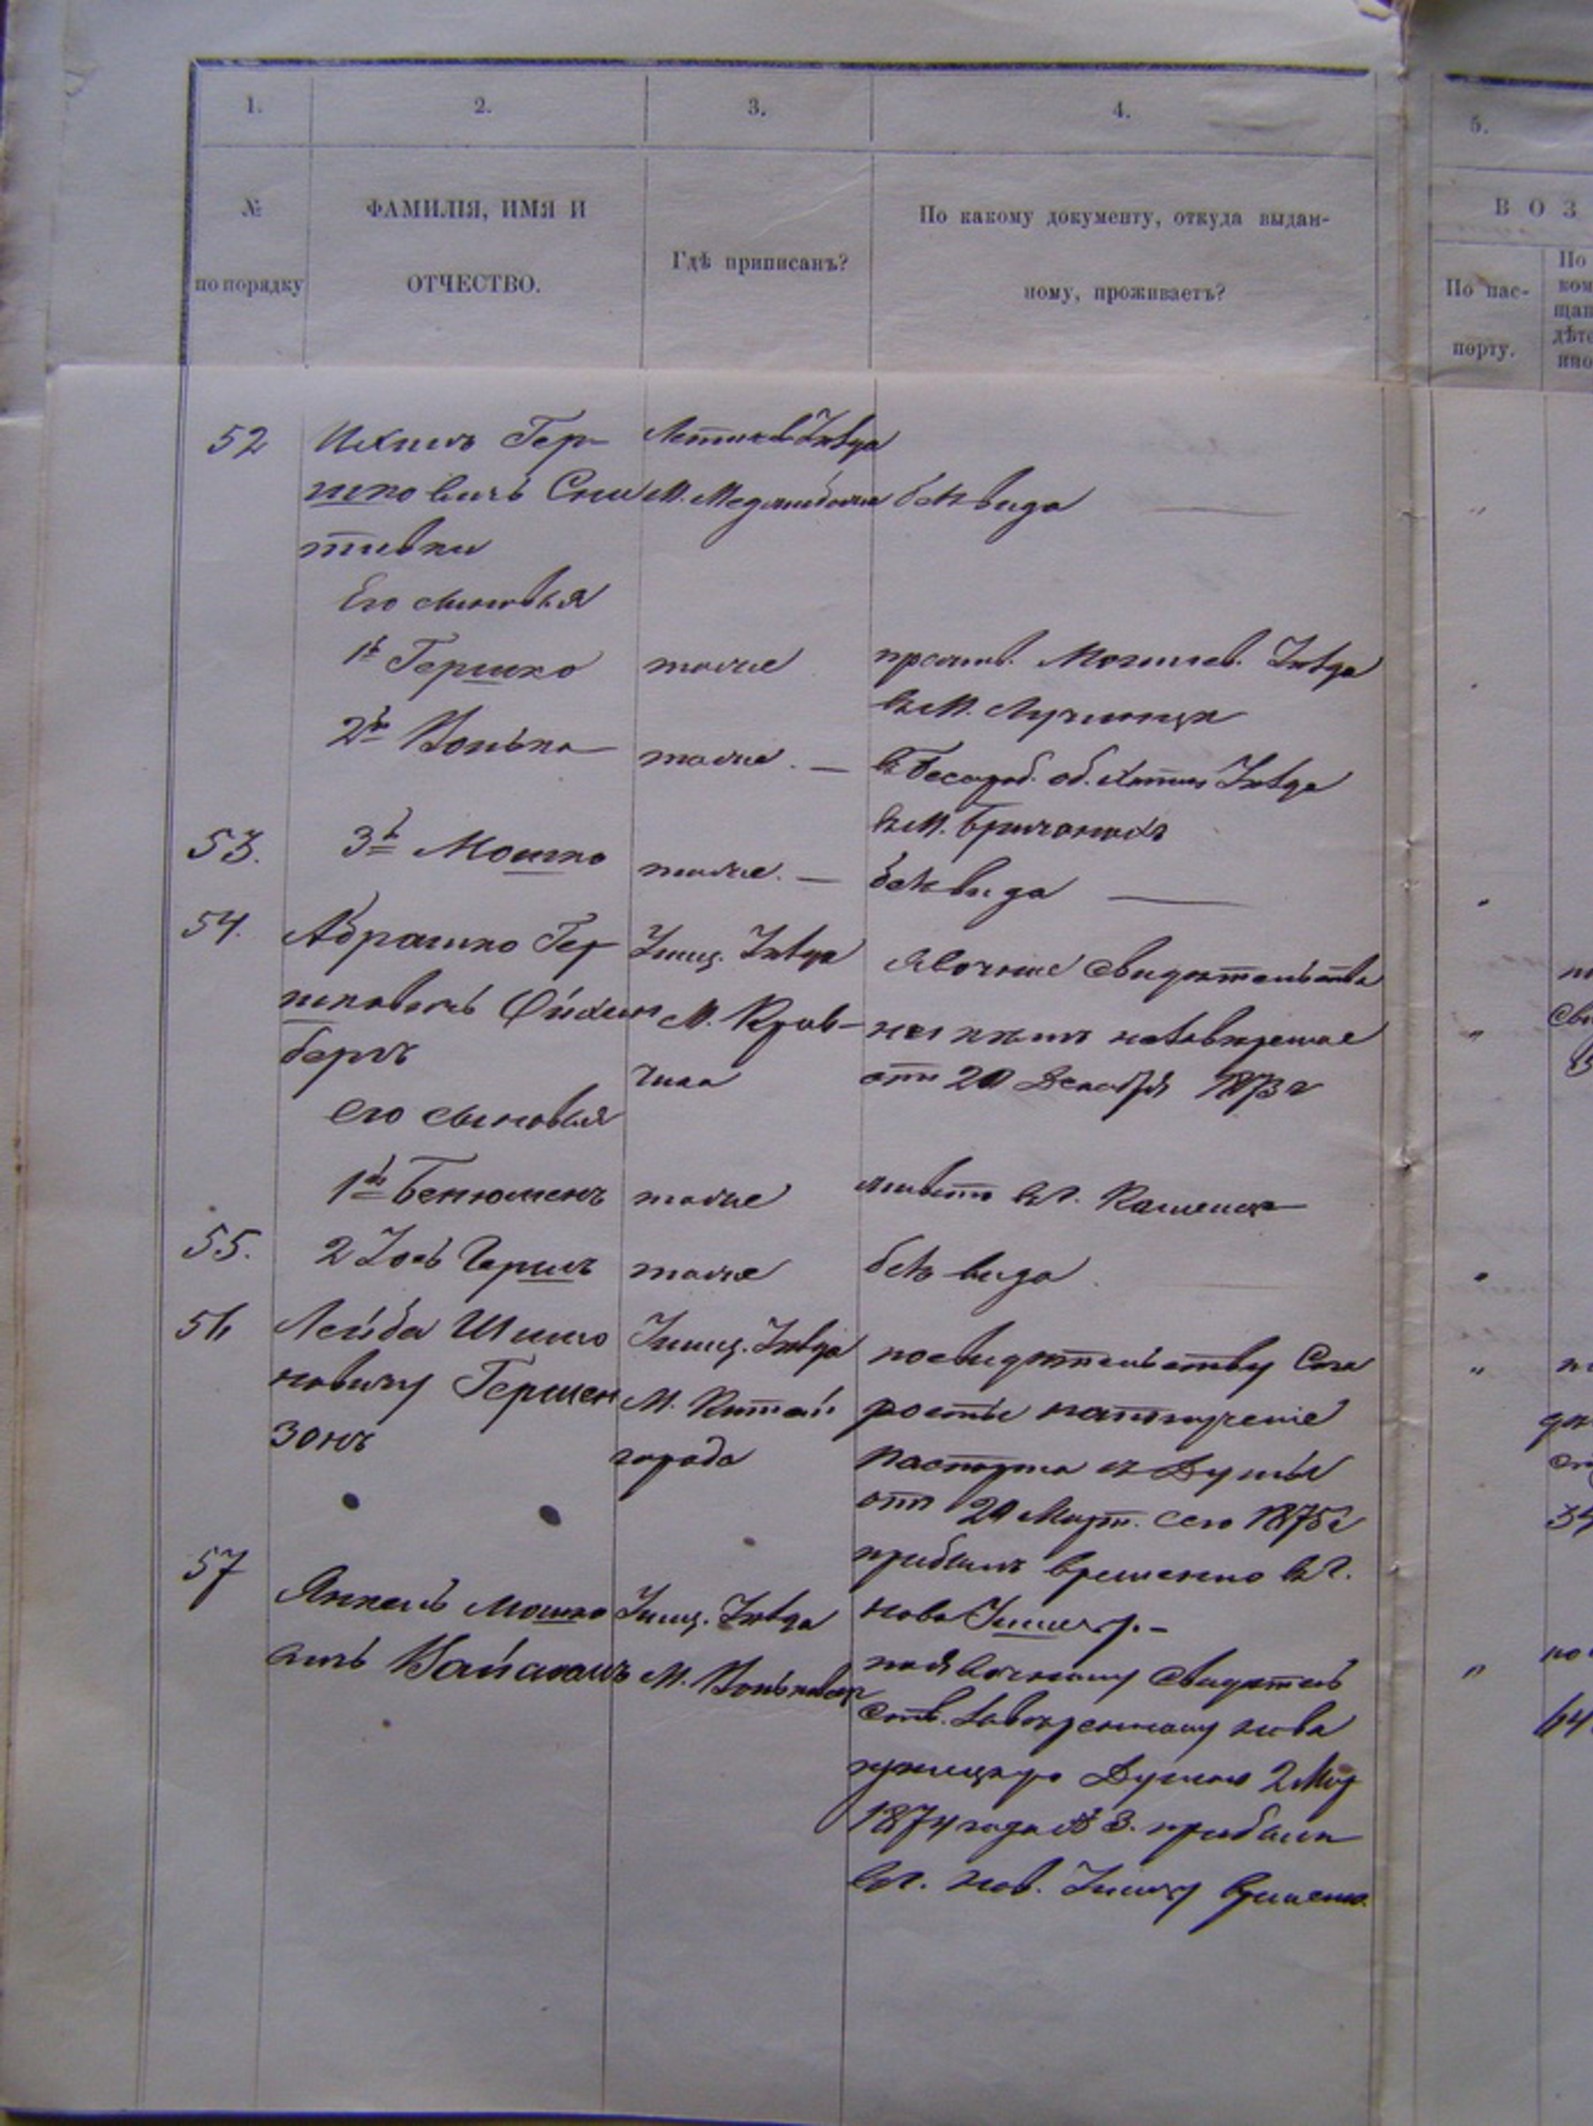 1.
2.
3.
4.
5.
№
по порядку
ФАМИЛІЯ, ИМЯ И
ОТЧЕСТВО.
Гдѣ приписанъ?
По какому документу, откуда выдан-
ному, проживаетъ?
ВОЗ
По пас-
порту.
По
ком
щап
дѣте
ино
52
Ихилъ Гер-
шковичъ Сни
тивки
Летичев. Уѣзда
М. Меджибожа
безъ вида
Его сыновья
1й Гершко
тоже
прожив. Могилев. Уѣзда
въ М. Лучинцѣ
2й Волько
тоже. —
въ Бесараб. об. Хотин. Уѣзда
въ М. Бричанахъ
53.
3й Мошко
тоже. —
безъ вида
54.
Абрашко Гер-
шковичъ Фих
бергъ
Ушиц. Уѣзда
М. Крив-
чика
явочное свидѣтельство
отъ 20 Декабря 1873 г
его сыновья
1й Бенюменъ
тоже
живетъ въ г. Каменцѣ
55.
2 Іосъ Гершъ
тоже
безъ вида
56
Лейба Шимо
новичъ Гершен
зонъ
Ушиц. Уѣзда
М. Китай
города
по свидѣтельству Ста
росты на получение
паспорта изъ Думы
отъ 20 Март. сего 1875 г
прибылъ временно въ г.
Нова Ушицу. —
57
Янкель Мошко
вичъ Вайсманъ
Ушиц. Уѣзда
М. Вонькове
по явочному свидѣтель
ств. нова
ушицкую Думою 2 Мар
1874 года № 3. прибылъ
въ г. Нов. Ушицу времено.